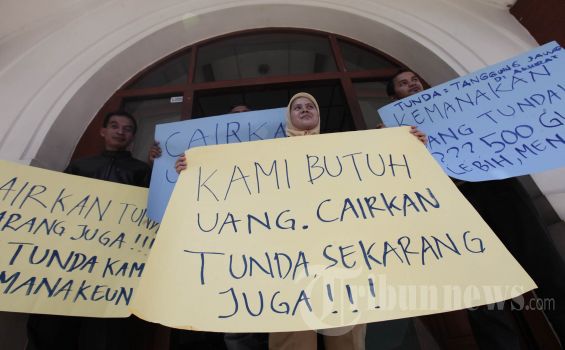 CAIRKAN TUN
ARANG JUGA!!!
TUNDA KAM
MANAKEUN
CAIRKA
KAMI BUTUH
UANG. CAIRKAN
TUNDA SEKARANG
JUGA!!!
TUNDA: TANGGUNG JAWA
DI
KEMANAKAN
ANG TUNDA
??? 500 GU
EBIH, MEN
Tribunnews.com